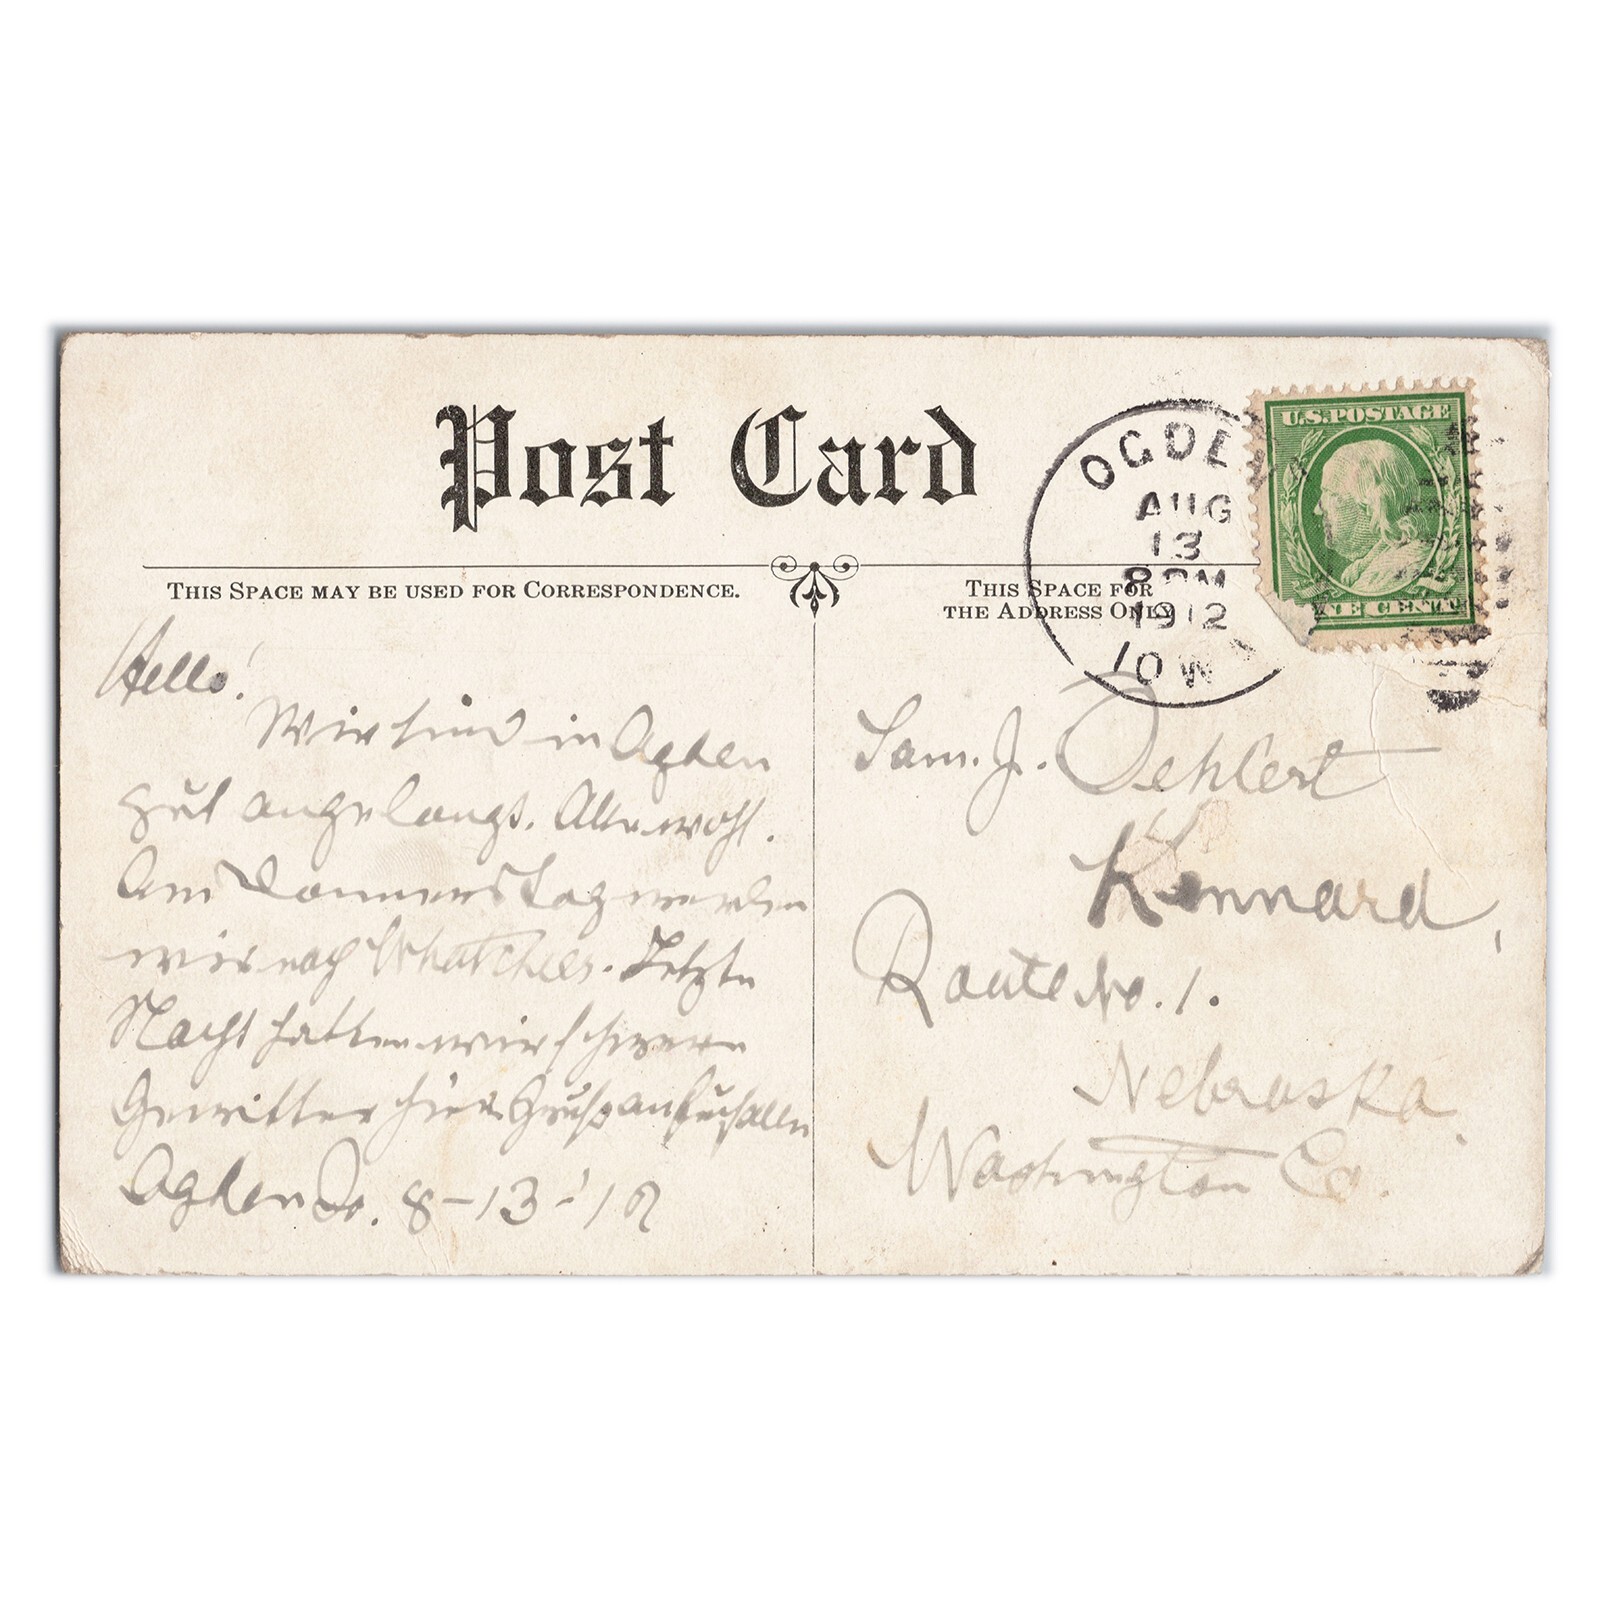 Post Card
THIS SPACE MAY BE USED FOR CORRESPONDENCE.
Hello!
Wir sind in Ogden
gut angelangt. Alle wohl.
Am Donnerstag werden
wir nach Letzte
Nacht hatten wir schwere
Gewitter hier. Gruß an Euch alle
Ogden Io. 8-13-'12
THIS SPACE FOR
THE ADDRESS ONLY
OGDE
AUG
13
8 PM
1912
IOWA
U.S. POSTAGE
NE CENT
Sam. J. Oehlert
Kennard,
Route No. 1.
Nebraska.
Washington Co.